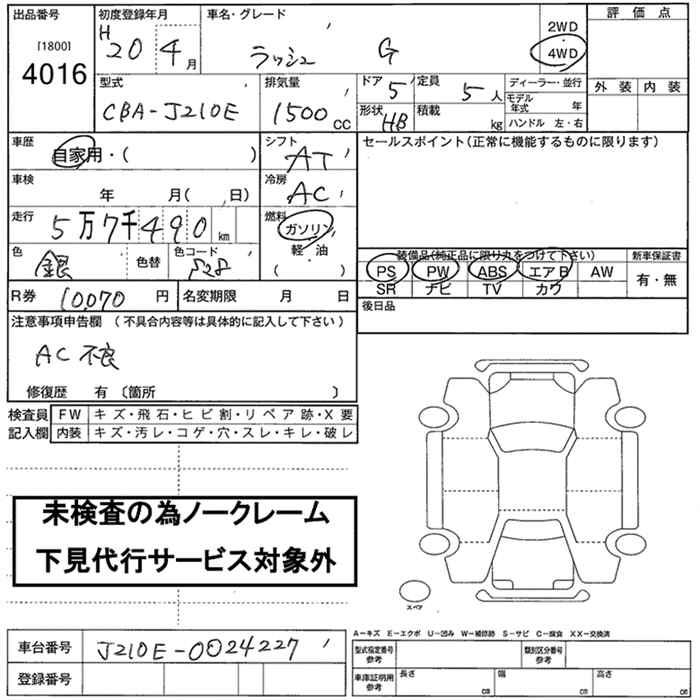 出品番号 初度登録年月 車名・グレード 評価点
[1800] H 20 4月 ラッシュ G 2WD
4016 4WD
外装 内装
型式 排気量 ドア 5 定員 5人 ディーラー・並行
CBA-J210E 1500cc 形状 HB 積載 kg モデル年式 年
ハンドル 左・右
車歴 自家用・( ) シフト AT セールスポイント(正常に機能するものに限ります)
車検 年 月( 日) 冷房 AC
走行 5万7千490km 燃料 ガソリン
軽・油
( )
色 銀 色替 色コード S28 装備品(純正品に限り丸をつけて下さい) 新車保証書
PS PW ABS エアB AW 有・無
SR ナビ TV カワ
R券 10,070円 名変期限 月 日 後日品
注意事項申告欄(不具合内容等は具体的に記入して下さい)
AC不良
修復歴 有〔箇所 〕
検査員 FW キズ・飛石・ヒビ割・リペア跡・X要
記入欄 内装 キズ・汚レ・コゲ・穴・スレ・キレ・破レ
未検査の為ノークレーム
下見代行サービス対象外
スペア
A-キズ E-エクボ U-凹み W-補修跡 S-サビ C-腐食 XX-交換済
車台番号 J210E-0024227 型式指定番号参考 類別区分番号参考
登録番号 車庫証明用参考 長さ cm 幅 cm 高さ cm